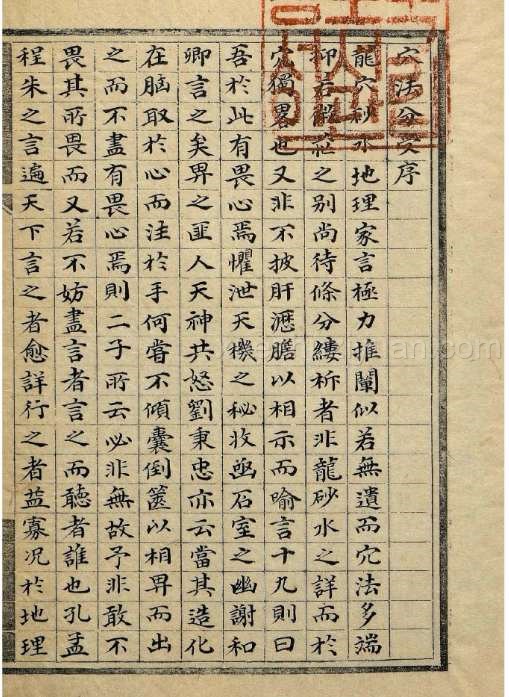 穴法分受序
龍穴砂水地理家言極力推闡似若無遺而穴法多端
之別尚待條分縷析者非龍砂水之詳而於
穴獨畧也又非不披肝瀝膽以相示而喻言十九則曰
吾於此有畏心焉懼泄天機之秘石室之幽謝和
卿言之矣畀之匪人天神共怒劉秉忠亦云當其造化
在脳取於心而注於手何嘗不傾囊倒篋以相畀而出
之而不盡有畏心焉則二子所云必非無故予非敢不
畏其所畏而又若不妨盡言者言之而聽者誰也孔孟
程朱之言遍天下言之者愈詳行之者益寡况於地理